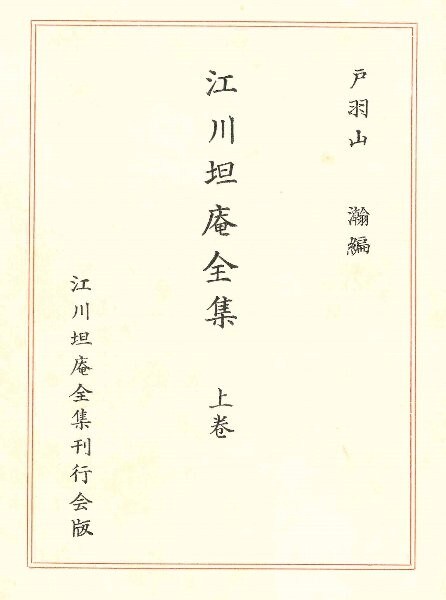 戸羽山 瀚編
江川坦庵全集 上巻
江川坦庵全集刊行会版